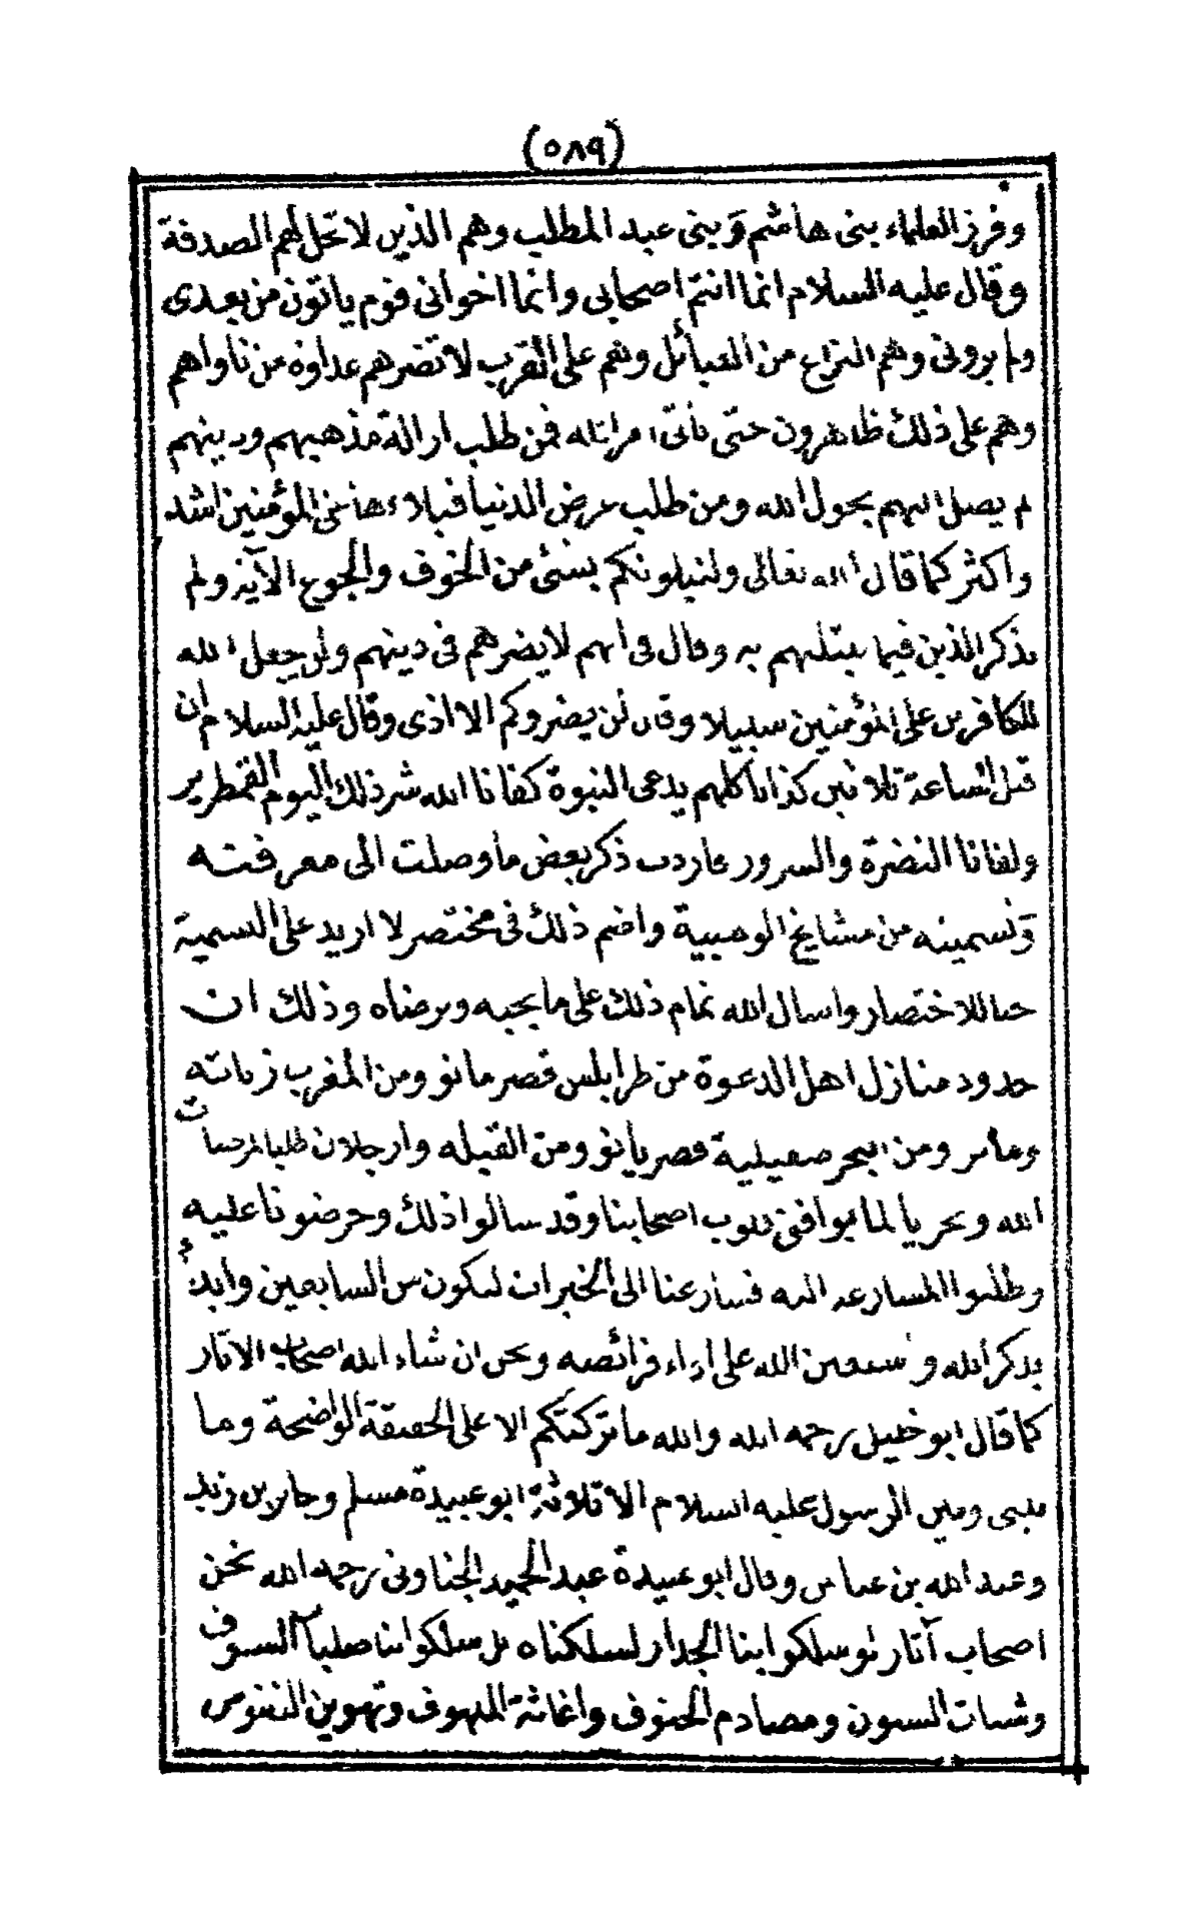 (٥٨٩)
وفرز العلماء بنى هاشم وبنى عبد المطلب وهم الذين لا تحل لهم الصدقة
وقال عليه السلام انما انتم اصحابى وانما اخوانى قوم ياتون من بعدى
ولم يرونى وهم النزاع من القبائل وهم على القرب لا تضرهم عداوة من ناواهم
وهم على ذلك ظاهرون حتى يأتى امر الله فمن طلب ازالة مذهبهم ودينهم
لم يصل اليهم بحول الله ومن طلب عرض الدنيا فبلاء هانى المؤمنين اشد
واكثر كما قال الله تعالى ولنبلونكم بشئ من الخوف والجوع الآية ولم
يذكر الذين فيما يبتليهم به وقال فى انهم لا يضرهم فى دينهم ولن يجعل الله
للكافرين على المؤمنين سبيلا وقال لن يضروكم الا اذى وقال عليه السلام ان
قبل الساعة ثلاثين كذابا كلهم يدعى النبوة كفانا الله شر ذلك اليوم القمطرير
ولقانا النضرة والسرور عاردت ذكر بعض ما وصلت الى معرفته
وتسميته من مشايخ الوهبية واضم ذلك فى مختصر لا اريد على التسمية
حبا للاختصار واسال الله تمام ذلك على ما يحبه ويرضاه وذلك ان
حدود منازل اهل الدعوة من طرابلس قصر مانو ومن المغرب زناته
ومن البحر صقيلية قصر يانو ومن القبله وارجلان طلبا لمرضات
الله وتحريا لما يوافق قلوب اصحابنا وقد سالوا ذلك وحرضونا عليه
وطلبوا المسارعة اليه فسارعنا الى الخيرات لنكون من السابقين وابدئ
بذكر الله ونستعين الله على اداء فرائضه ونحن ان شاء الله اصحاب الاثار
كما قال ابو خليل رحمه الله والله ما تركتكم الا على الحقيقة الواضحة وما
بينى وبين الرسول عليه السلام الا ثلاثة ابو عبيدة مسلم وجابر بن زيد
وعبد الله بن عباس وقال ابو عبيدة عبد الحميد الجناونى رحمه الله نحن
اصحاب آثار لو سلكوا بنا الجدار لسلكناه بل سلكوا بنا صلبا السيوف
وشبات السيون ومصادم الحنوف واغاثة الملهوف وتهوين النفوس